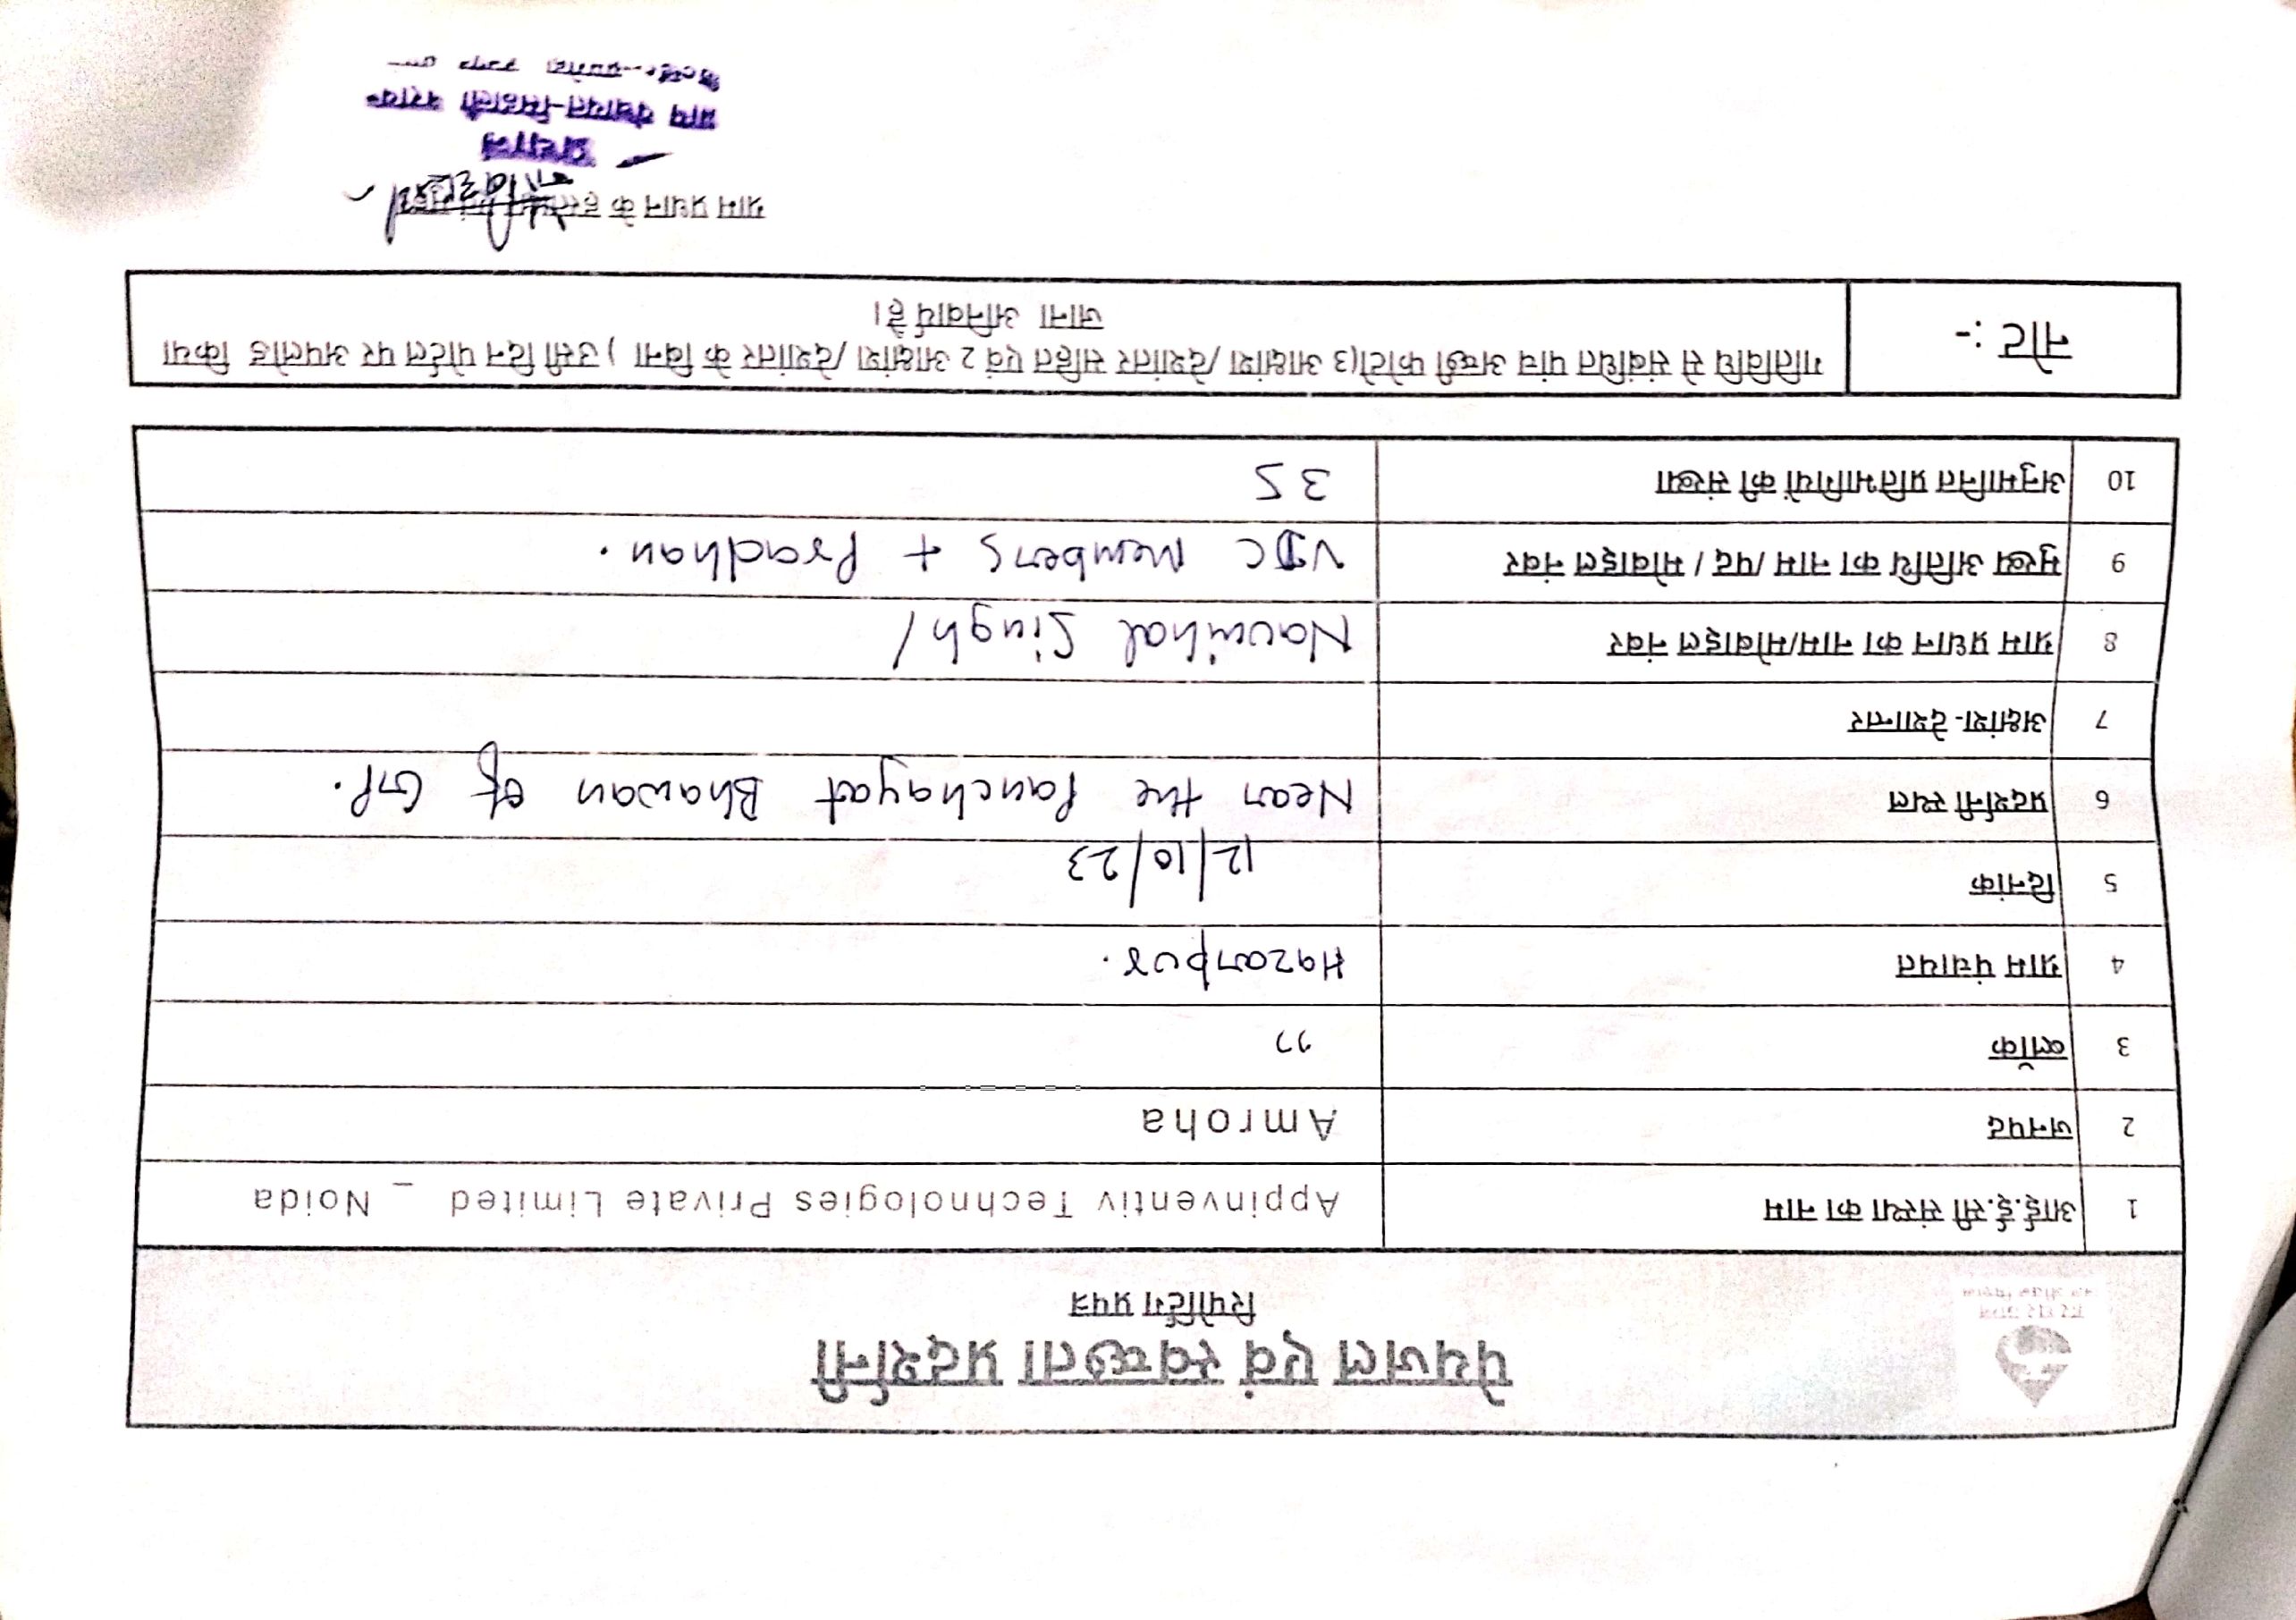 पेयजल एवं स्वच्छता प्रदर्शनी
रिपोर्टिंग प्रपत्र
1 आई.ई.सी संस्था का नाम Appinventiv Technologies Private Limited _ Noida
2 जनपद Amroha
3 ब्लॉक ”
4 ग्राम पंचायत Hazampur.
5 दिनांक 12/10/23
6 प्रदर्शनी स्थल Near the Panchayat Bhawan of GP.
7 अक्षांश- देशान्तर
8 ग्राम प्रधान का नाम/मोबाइल नंबर Naunihal Singh/
9 मुख्य अतिथि का नाम /पद / मोबाइल नंबर VDC Members + Pradhan.
10 अनुमानित प्रतिभागियों की संख्या 35
नोट :- गतिविधि से संबंधित पांच अच्छी फोटो(3 आक्षांश /देशांतर सहित एवं 2 आक्षांश /देशांतर के बिना ) उसी दिन पोर्टल पर अपलोड किया
जाना अनिवार्य है।
ग्राम प्रधान के
प्रधान
ग्राम पंचायत-